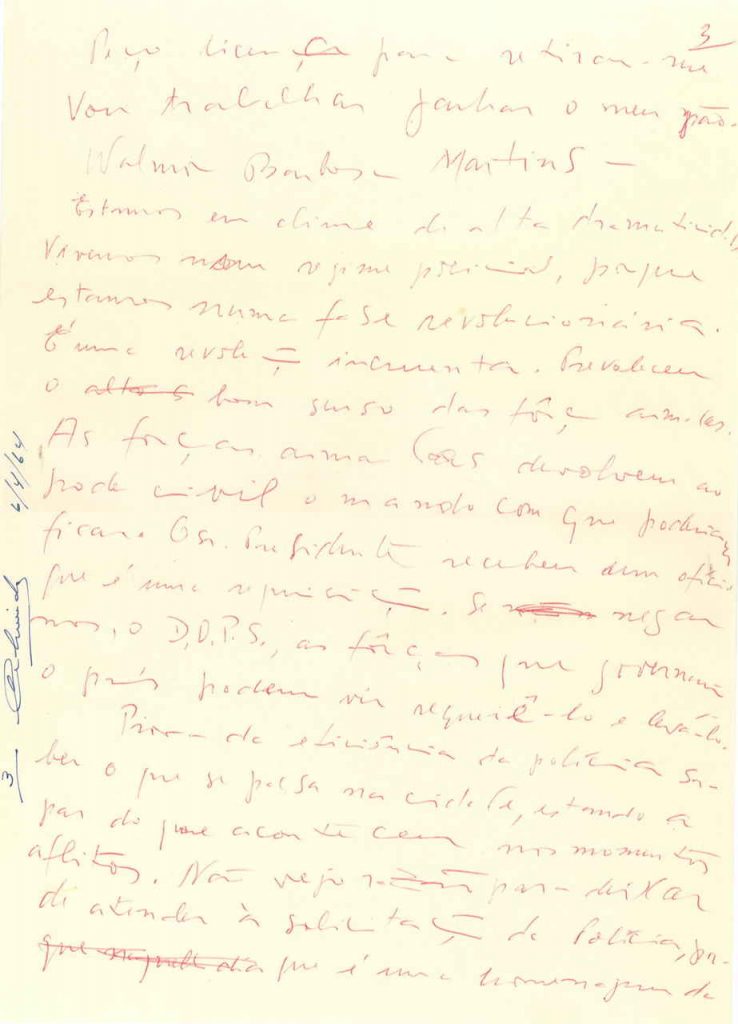 3
Peço licença para retirar-me
Vou trabalhar ganhar o meu pão.
Walmir Barbosa Martins –
Estamos em clima de alta dramaticidade
Vivemos num regime policial, porque
estamos numa fase revolucionária.
É uma revolução incruenta. Prevaleceu
o bom senso das forças armadas.
As forças armadas devolvem ao
poder civil o mando com que poderiam
ficar. O Sr. Presidente recebeu um ofício
que é uma requisição. Se negar
mos, o D.O.P.S., as forças que governam
o país podem vir requerê-lo e levá-lo.
Prova da eficiência da polícia sa-
ber o que se passa na cidade, estando a
par do que aconteceu nos momentos
aflitos. Não vejo razão para deixar
de atender à solicitação da Polícia, por-
que é uma homenagem da
3 6/4/64